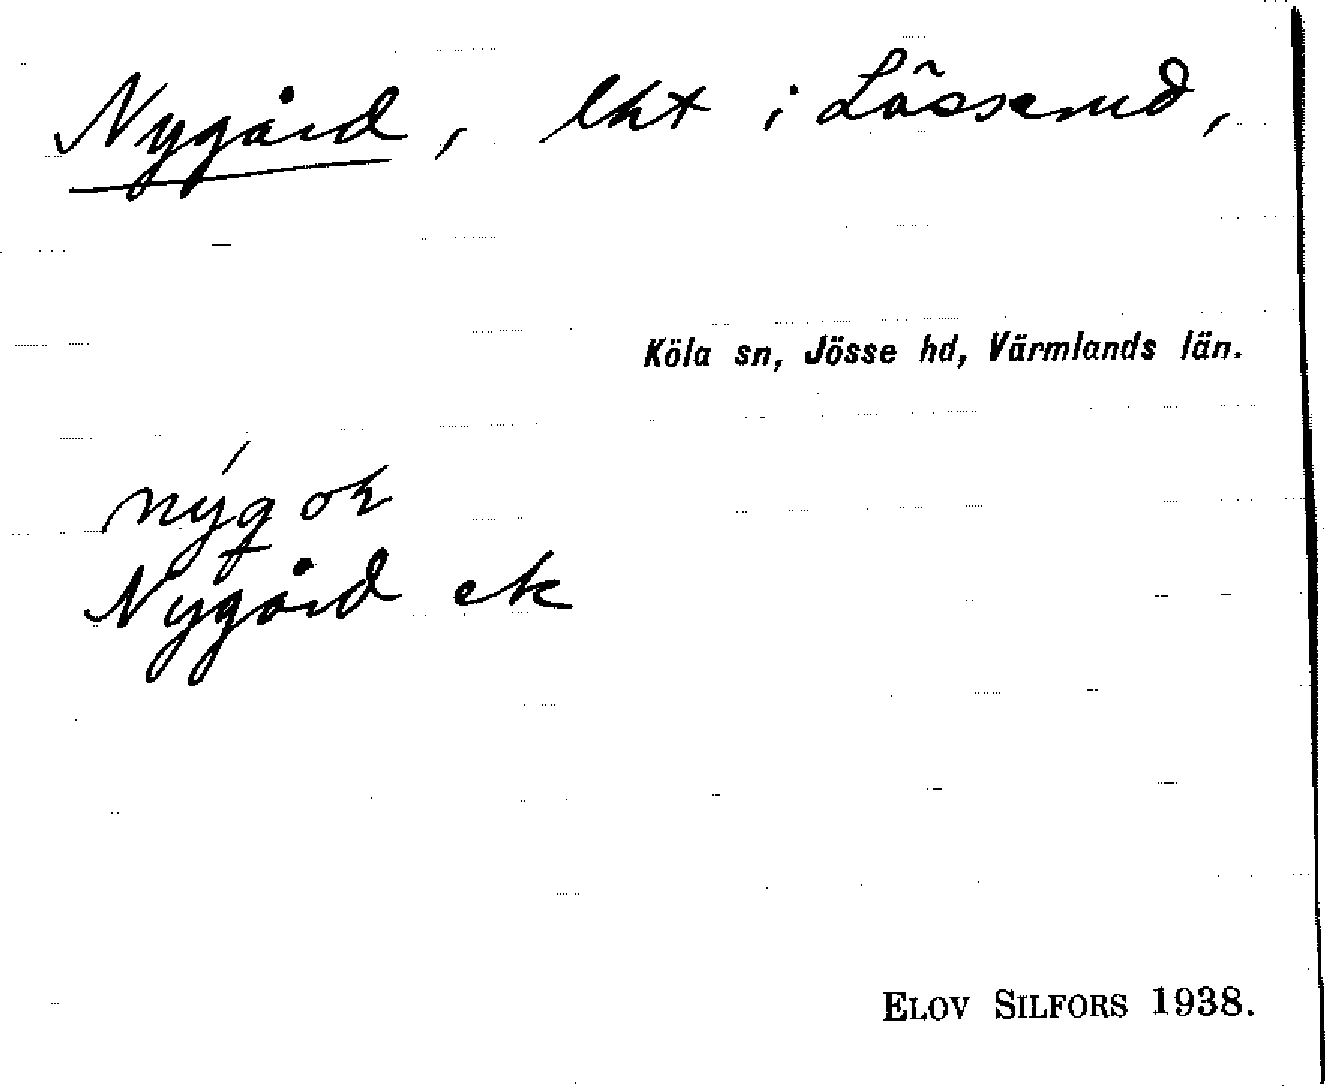 Nygård, lht i Lässerud,
Köla sn, Jösse hd, Värmlands län.
Nygård ek
ELOV SILFORS 1938.